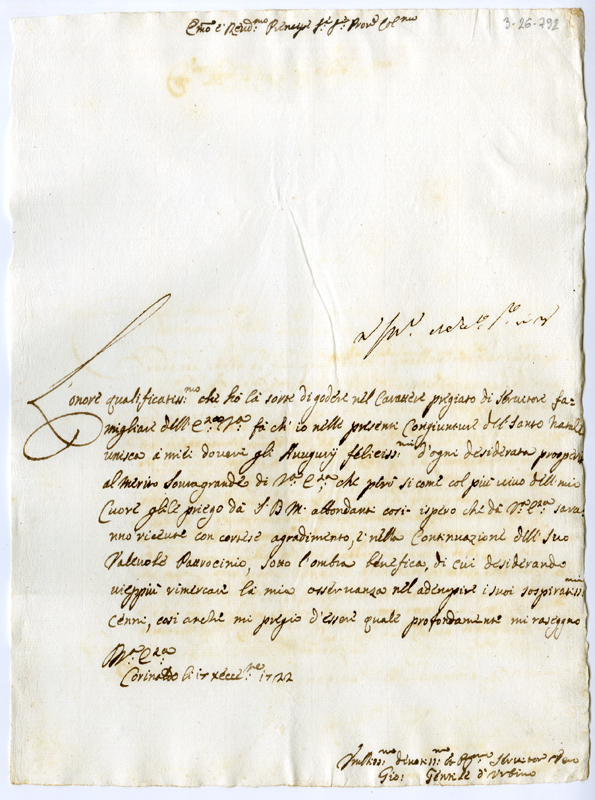 Em̃o e Reud:mo Prencipe Sr. Sr. Pron̄e Col:mo
3-26-792
L'onore qualificatiss:mo che hò la sorte di godere nel Carattere pregiato di Seruitore fa=
migliare dell' E:za V:ra fà ch'io nelle presenti Congiunture del Santo Natale
unisca à miei doueri gli Auugurÿ feliciss:mi d'ogni desiderata prosperità
al merito Souragrande di V:ra E:za, che però si come col più uiuo dell mio
Cuore gliele priego dà S. D. M. abbondanti così ispero che dà V:ra E:za sara=
nno riceuute con cortese agradimento, e nella Continuazione dell suo
Valeuole Patrocinio, sotto l'ombra benefica, di cui desiderando
uieppiù rimarcare la mia osseruanza nel adempire i suoi sospiratiss:mi
Cenni, così anche mi pregio d'essere quale profondamente mi rassegno
V:ra E:za
Corinaldo li 17 Xbre 1722
deuotiss:mo et Seruitore
Gio: d'Urbino